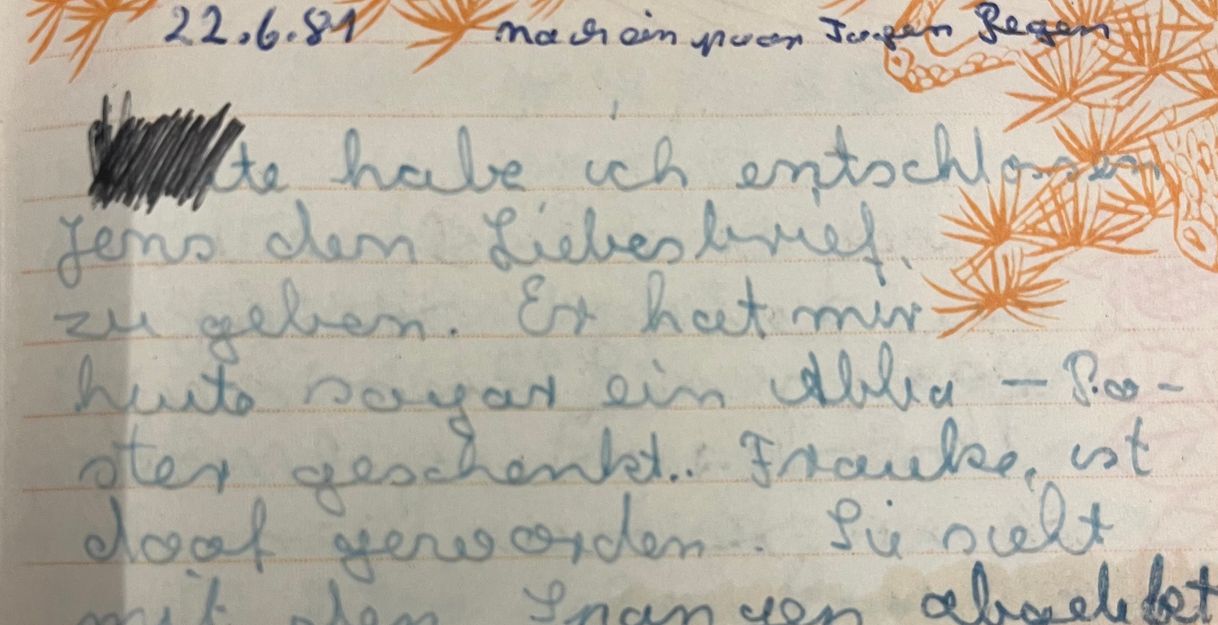 22.6.81 nach ein paar Tagen Regen
te habe ich entschlossen
Jens den Liebesbrief
zu geben. Er hat mir
heute sogar ein Abba - Po-
ster geschenkt. Frauke, ist
doof geworden. Sie sieht
mit den